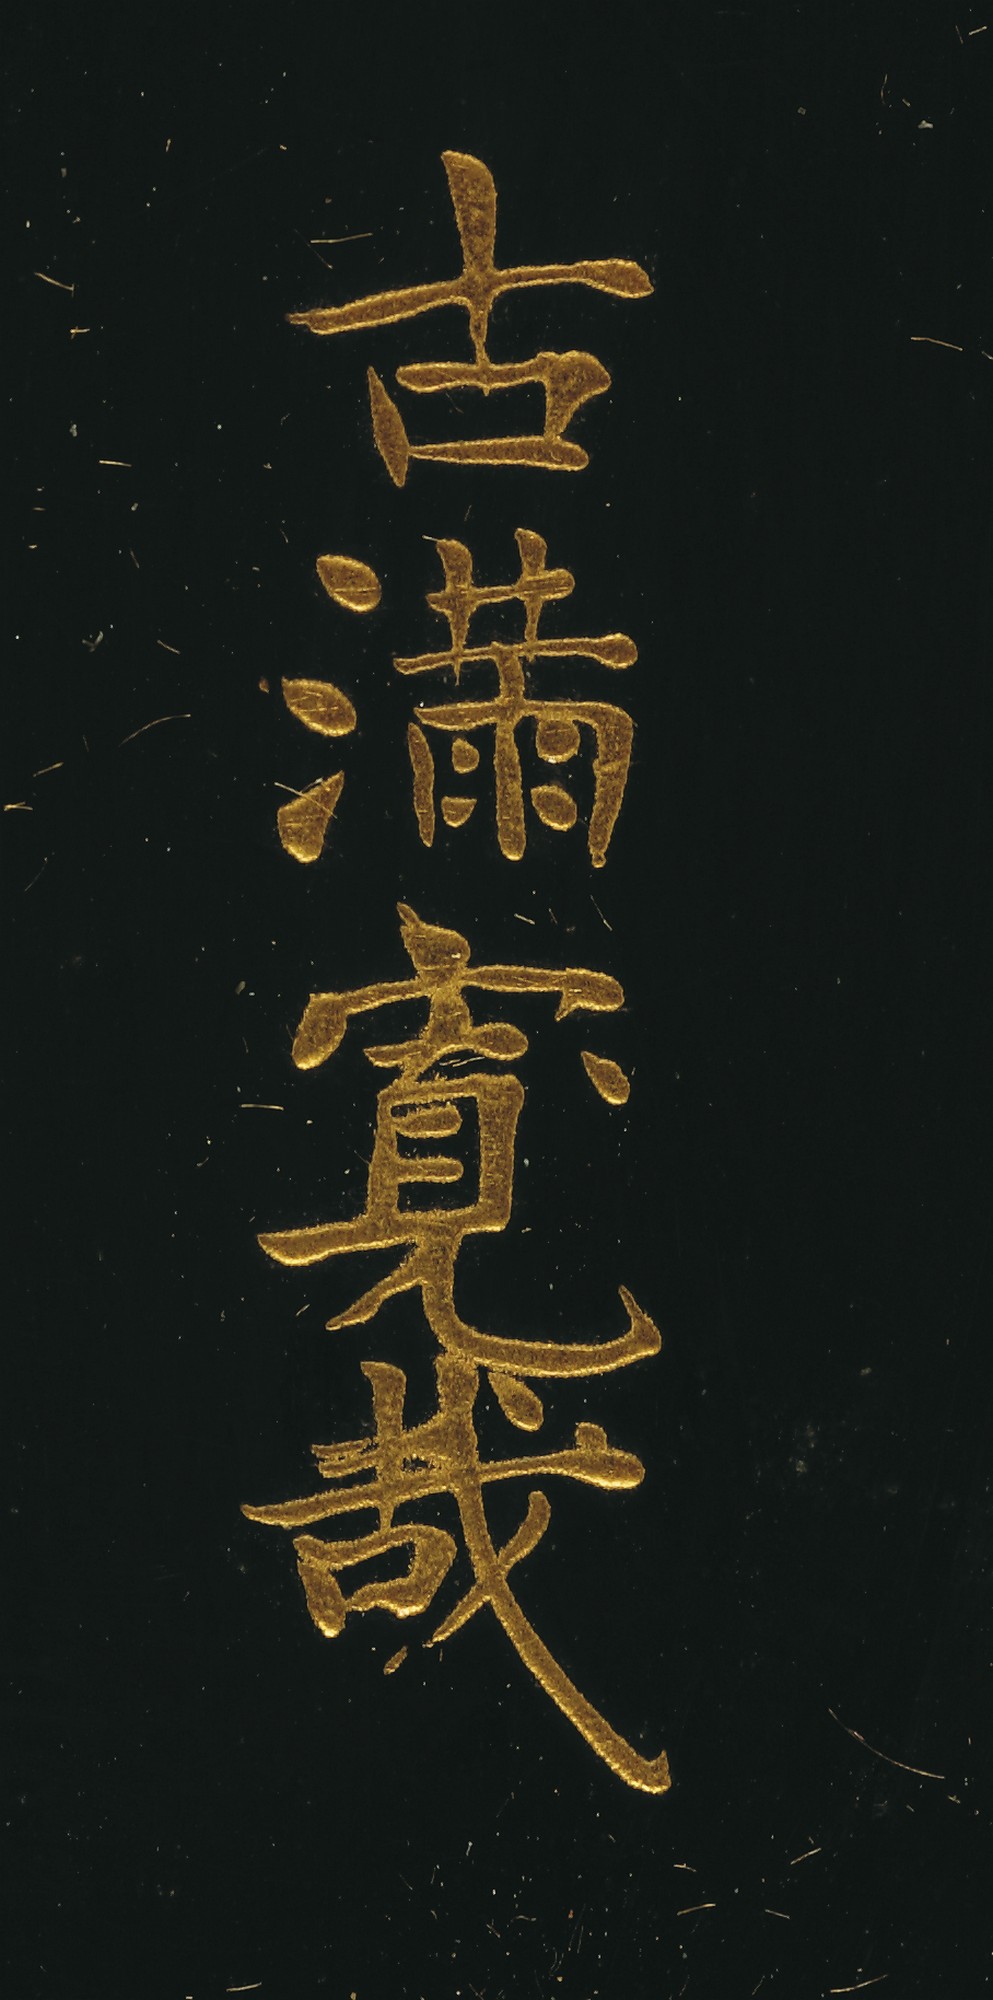 古満寛哉